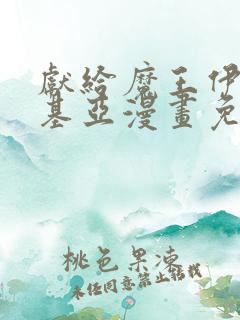 獻給魔王伊
基亞漫畫免
桃色果凍
未经同意禁止转载